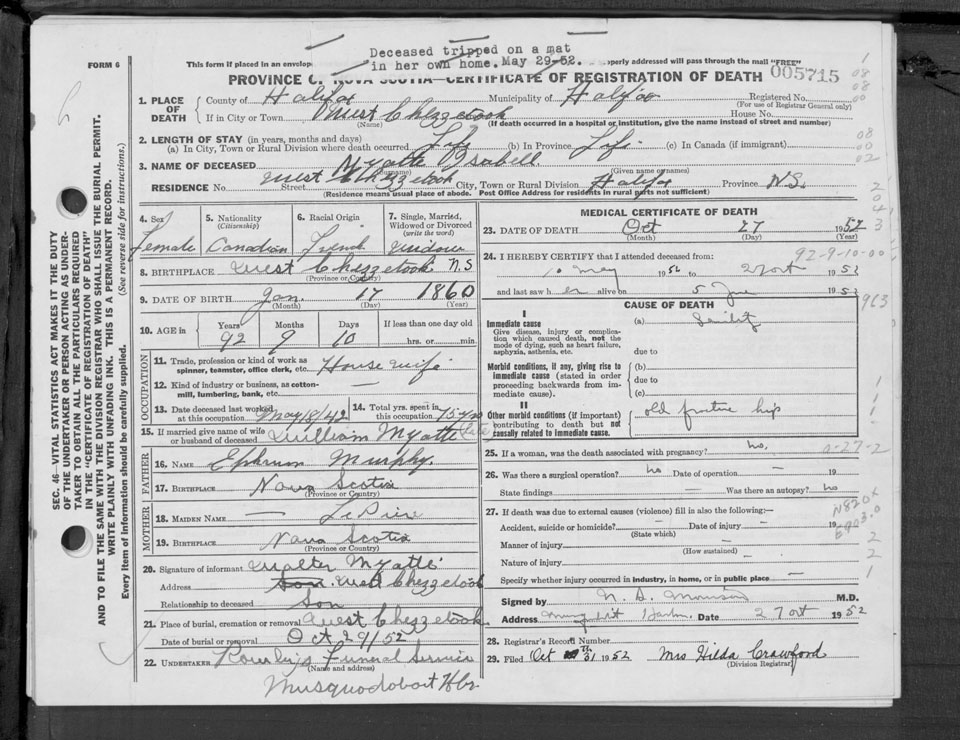 Deceased tripped on a mat
in her own home. May 29-52.
FORM 6
This form if placed in an envelop properly addressed will pass through the mail "FREE"
PROVINCE OF NOVA SCOTIA—CERTIFICATE OF REGISTRATION OF DEATH 005715
1. PLACE OF DEATH County of Halifax Municipality of Halifax Registered No.
(For use of Registrar General only)
If in City or Town West Chezzetcook House No.
(Name) (If death occurred in a hospital or institution, give the name instead of street and number)
2. LENGTH OF STAY (in years, months and days)
(a) In City, Town or Rural Division where death occurred Life (b) In Province Life (c) In Canada (if immigrant)
3. NAME OF DECEASED Myatte Isabell
(Surname) (Given name or names)
RESIDENCE No. Street West Chezzetcook City, Town or Rural Division Halifax Province N.S.
(Residence means usual place of abode. Post Office Address for residents in rural parts not sufficient)
4. Sex 5. Nationality (Citizenship) 6. Racial Origin 7. Single, Married, Widowed or Divorced (write the word)
Female Canadian French Widow
8. BIRTHPLACE West Chezzetcook N.S
(Province or Country)
9. DATE OF BIRTH Jan. 17 1860
(Month) (Day) (Year)
10. AGE in Years Months Days If less than one day old
92 9 10 hrs. or min.
OCCUPATION
11. Trade, profession or kind of work as spinner, teamster, office clerk, etc. House wife
12. Kind of industry or business, as cotton-mill, lumbering, bank, etc. —
13. Date deceased last worked at this occupation May/8/42 14. Total yrs. spent in this occupation 75 yrs
15. If married give name of wife or husband of deceased William Myatte (late)
FATHER
16. NAME Ephrum Murphy.
17. BIRTHPLACE Nova Scotia
(Province or Country)
MOTHER
18. MAIDEN NAME — LePiere
19. BIRTHPLACE Nova Scotia
(Province or Country)
20. Signature of informant Walter Myatte
Address Son. West Chezzetcook
Relationship to deceased Son
21. Place of burial, cremation or removal West Chezzetcook
Date of burial or removal Oct 29/52
22. UNDERTAKER Funeral Service
(Name and address)
Musquodoboit Hbr
MEDICAL CERTIFICATE OF DEATH
23. DATE OF DEATH Oct 27 1952
(Month) (Day) (Year)
24. I HEREBY CERTIFY that I attended deceased from: 92-9-10-00
May 1952 to 27 Oct 1952
and last saw her alive on 5 June 1952
CAUSE OF DEATH 963
I
Immediate cause (a) Senility
Give disease, injury or complication which caused death, not the mode of dying, such as heart failure, asphyxia, asthenia, etc. due to
Morbid conditions, if any, giving rise to immediate cause (stated in order proceeding backwards from immediate cause). (b)
due to
(c)
II
Other morbid conditions (if important) contributing to death but not causally related to immediate cause. old fracture hip
25. If a woman, was the death associated with pregnancy? no.
26. Was there a surgical operation? no Date of operation — 19
State findings — Was there an autopsy? no
27. If death was due to external causes (violence) fill in also the following:—
Accident, suicide or homicide? — Date of injury — 19
(State which)
Manner of injury
(How sustained)
Nature of injury
Specify whether injury occurred in industry, in home, or in public place —
Signed by M.D.
Address Date 27 Oct 1952
28. Registrar's Record Number
29. Filed Oct 31 1952 Mrs Hilda Crawford
(Division Registrar)
SEC. 46—VITAL STATISTICS ACT MAKES IT THE DUTY
OF THE UNDERTAKER OR PERSON ACTING AS UNDER-
TAKER TO OBTAIN ALL THE PARTICULARS REQUIRED
IN THE "CERTIFICATE OF REGISTRATION OF DEATH"
AND TO FILE THE SAME WITH THE DIVISION REGISTRAR WHO SHALL ISSUE THE BURIAL PERMIT.
WRITE PLAINLY WITH UNFADING INK. THIS IS A PERMANENT RECORD.
Every item of information should be carefully supplied. (See reverse side for instructions.)